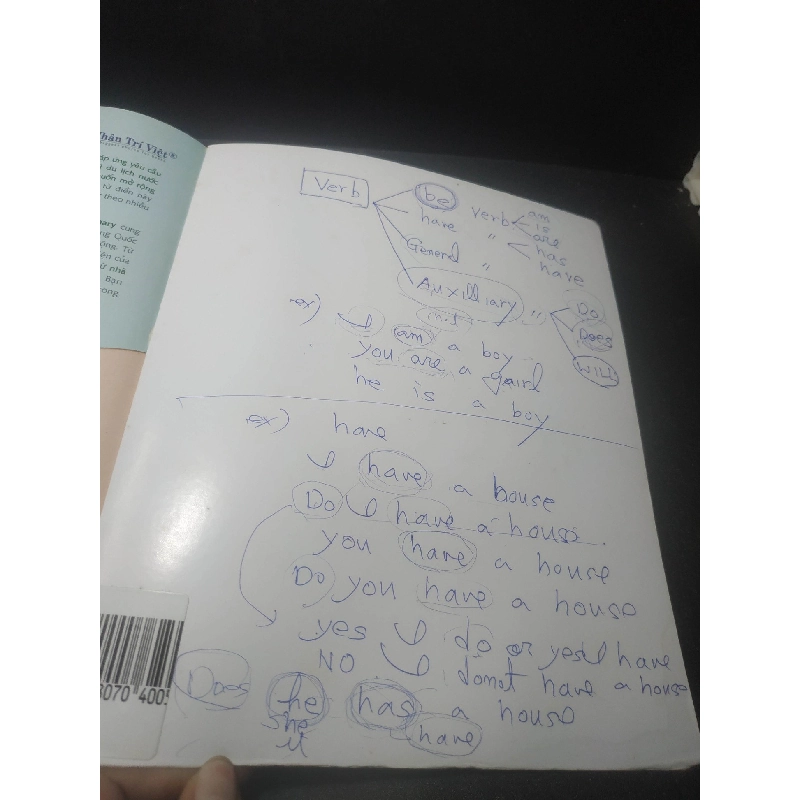 hân Trí Việt®
áp ứng yêu cầu
i du lịch nước
uốn mở rộng
từ điển này
theo nhiều
ary cung
ng Quốc
ộng. Từ
ện của
ữ nhà
Bạn
rong
Verb
be verb am
is
are
have " has
have
General "
Auxilliary " Do
Does
Will
ex) I am a boy
you are a gairl
he is a boy
ex) have
I have a house
Do I have a house.
you have a house
Do you have a house
yes I do or yes I have
NO I donot have a house
Does he has a house
she have
it
8070 400